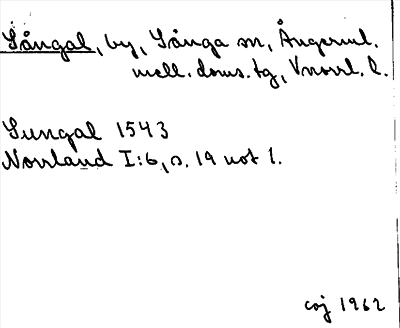 Sångal, by, Sånga sn, Ångerml.
mell. doms. tg, Vnorrl. l.
Sungal 1543
Norrland I:6, s. 19 not 1.
coj 1962